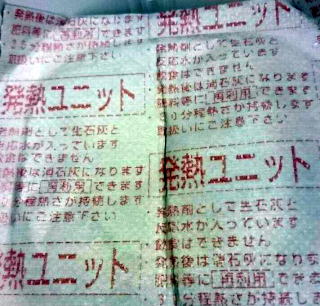 発熱後は消石灰になります
肥料等に再利用できます
30分程熱さが持続します
取扱いにご注意下さい
発熱ユニット
発熱剤として生石灰と
反応水が入っています
飲食はできません
発熱後は消石灰になります
肥料等に再利用できます
30分程熱さが持続します
取扱いにご注意下さい
発熱ユニット
発熱剤として生石灰と
反応水が入っています
飲食はできません
発熱後は消石灰になります
肥料等に再利用できます
30分程熱さが持続します
取扱いにご注意下さい
発熱ユニット
発熱剤として生石灰と
反応水が入っています
飲食はできません
発熱後は消石灰になります
肥料等に再利用できます
30分程熱さが持続し
熱ユニット